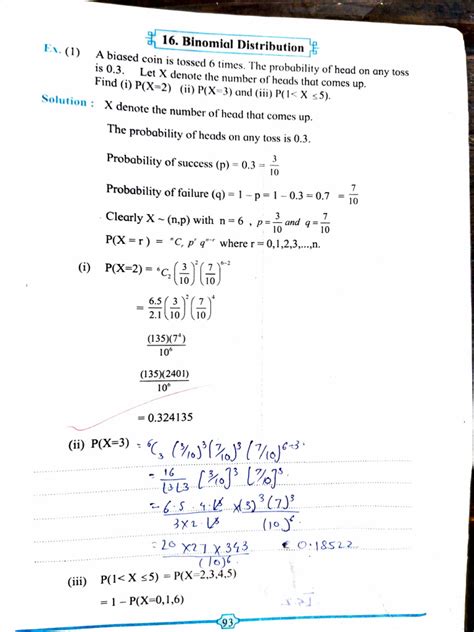 16. Binomial Distribution
Ex. (1) A biased coin is tossed 6 times. The probability of head on any toss
is 0.3. Let X denote the number of heads that comes up.
Find (i) P(X=2) (ii) P(X=3) and (iii) P(1< X ≤5).
Solution : X denote the number of head that comes up.
The probability of heads on any toss is 0.3.
Probability of success (p) = 0.3 = 3/10
Probability of failure (q) = 1 – p = 1 – 0.3 = 0.7 = 7/10
Clearly X ~ (n,p) with n = 6 , p = 3/10 and q = 7/10
P(X = r ) = ⁿCᵣ pʳ qⁿ⁻ʳ where r = 0,1,2,3,...,n.
(i) P(X=2) = ⁶C₂ (3/10)² (7/10)⁶⁻²
= 6.5/2.1 (3/10)² (7/10)⁴
(135)(7⁴)/10⁶
(135)(2401)/10⁶
= 0.324135
(ii) P(X=3) = ⁶C₃ (3/10)³ (7/10)³ (7/10)⁶⁻³
= |6/|3 |3 [3/10]³ [7/10]³
= 6·5·4·|3/3×2·|3 × (3)³ (7)³/(10)⁶
= 20 × 27 × 343/(10)⁶ = 0.18522
(iii) P(1< X ≤5) = P(X=2,3,4,5)
= 1 – P(X=0,1,6)
93